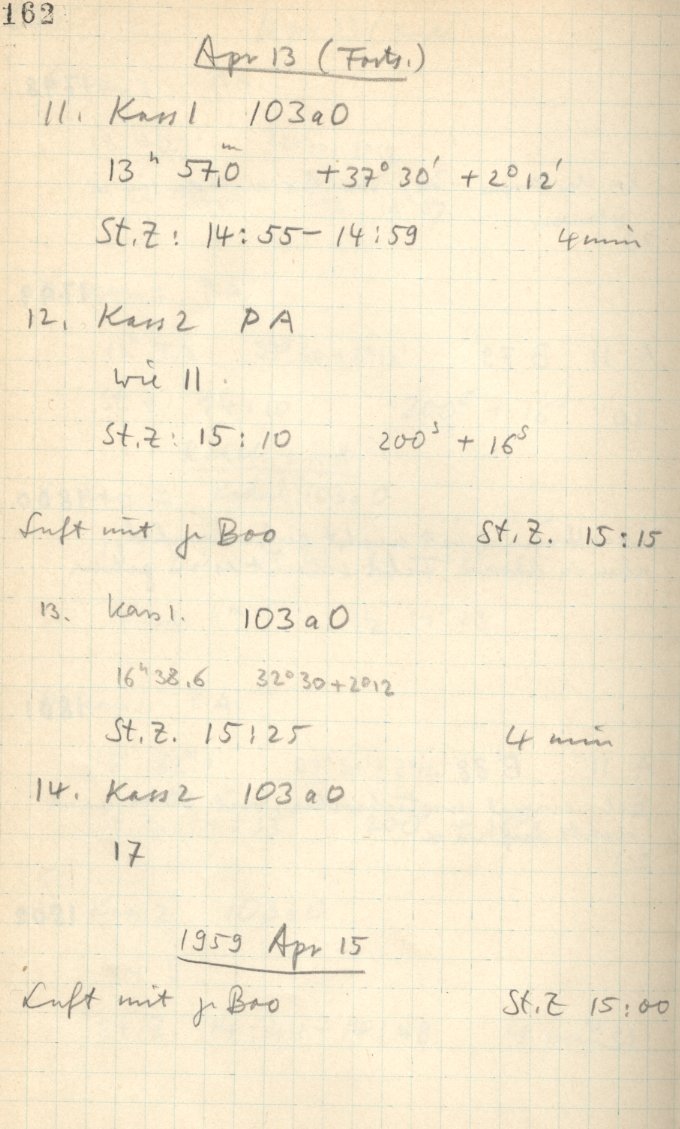 162
Apr 13 (Forts.)
11. Kass 1 103a0
13ʰ 57,0ᵐ +37° 30' +2° 12'
St.Z: 14:55 - 14:59 4 min
12. Kass 2 PA
wie 11.
St.Z: 15:10 200ˢ + 16ˢ
Luft mit γ Boo St.Z. 15:15
13. Kass 1. 103a0
16ʰ 38,6 32° 30 + 2° 12
St.Z. 15:25 4 min
14. Kass 2 103a0
17
1959 Apr 15
Luft mit γ Boo St.Z 15:00